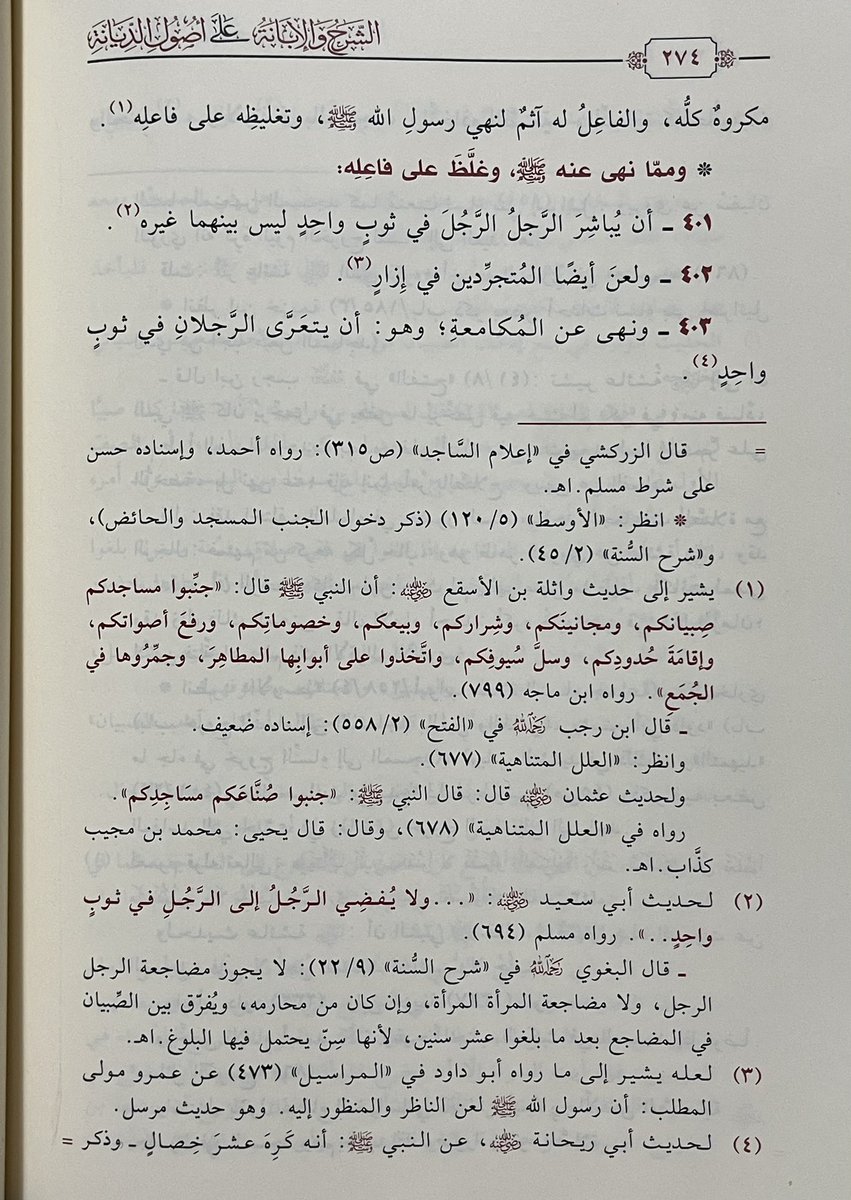 ٢٧٤
الشَّرْحُ وَالإِبَانَةُ عَلَى أُصُولِ الدِّيَانَةِ
مكروهٌ كلُّه، والفاعِلُ له آثمٌ لنهي رسولِ الله ﷺ، وتغليظِه على فاعلِه(١).
* وممّا نهى عنه ﷺ، وغلَّظَ على فاعِلِه:
٤٠١ ـ أن يُباشِرَ الرَّجلُ الرَّجُلَ في ثوبٍ واحِدٍ ليس بينهما غيره(٢).
٤٠٢ ـ ولعنَ أيضًا المُتجرِّدين في إزارٍ(٣).
٤٠٣ ـ ونهى عن المُكامعةِ؛ وهو: أن يتعَرَّى الرَّجلانِ في ثوبٍ
واحِدٍ(٤).
= قال الزركشي في «إعلام السَّاجد» (ص٣١٥): رواه أحمد، وإسناده حسن
على شرط مسلم.اهـ.
* انظر: «الأوسط» (١٢٠/٥) (ذكر دخول الجنب المسجد والحائض)،
و«شرح السُّنة» (٤٥/٢).
(١) يشير إلى حديث واثلة بن الأسقع رضي الله عنه: أن النبي ﷺ قال: «جنِّبوا مساجدكم
صِبيانكم، ومجانينَكم، وشِراركم، وبيعكم، وخصوماتِكم، ورفعَ أصواتكم،
وإقامَةَ حُدودِكم، وسلَّ سُيوفِكم، واتَّخذوا على أبوابِها المطاهِرَ، وجمِّرُوها في
الجُمَعِ». رواه ابن ماجه (٧٩٩).
ـ قال ابن رجب رحمه الله في «الفتح» (٥٥٨/٢): إسناده ضعيف.
وانظر: «العلل المتناهية» (٦٧٧).
ولحديث عثمان رضي الله عنه قال: قال النبي ﷺ: «جنبوا صُنَّاعَكم مساجِدِكم».
رواه في «العلل المتناهية» (٦٧٨)، وقال: قال يحيى: محمد بن مجيب
كذَّاب.اهـ.
(٢) لحديث أبي سعيد رضي الله عنه: «...ولا يُفضِي الرَّجُلُ إلى الرَّجُلِ في ثوبٍ
واحِدٍ..». رواه مسلم (٦٩٤).
ـ قال البغوي رحمه الله في «شرح السُّنة» (٢٢/٩): لا يجوز مضاجعة الرجل
الرجل، ولا مضاجعة المرأة المرأة، وإن كان من محارمه، ويُفرّق بين الصِّبيان
في المضاجع بعد ما بلغوا عشر سنين، لأنها سِنّ يحتمل فيها البلوغ.اهـ.
(٣) لعله يشير إلى ما رواه أبو داود في «المراسيل» (٤٧٣) عن عمرو مولى
المطلب: أن رسول الله ﷺ لعن الناظر والمنظور إليه. وهو حديث مرسل.
(٤) لحديث أبي ريحانة رضي الله عنه، عن النبي ﷺ: أنه كَرِهَ عشرَ خِصالٍ ـ وذكر =